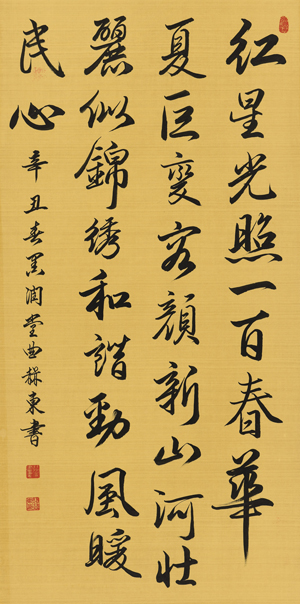 红星光照一百春華
夏巨变容顔新山河壮
麗似錦绣和諧勁風暖
民心
辛丑春墨润堂曲東書